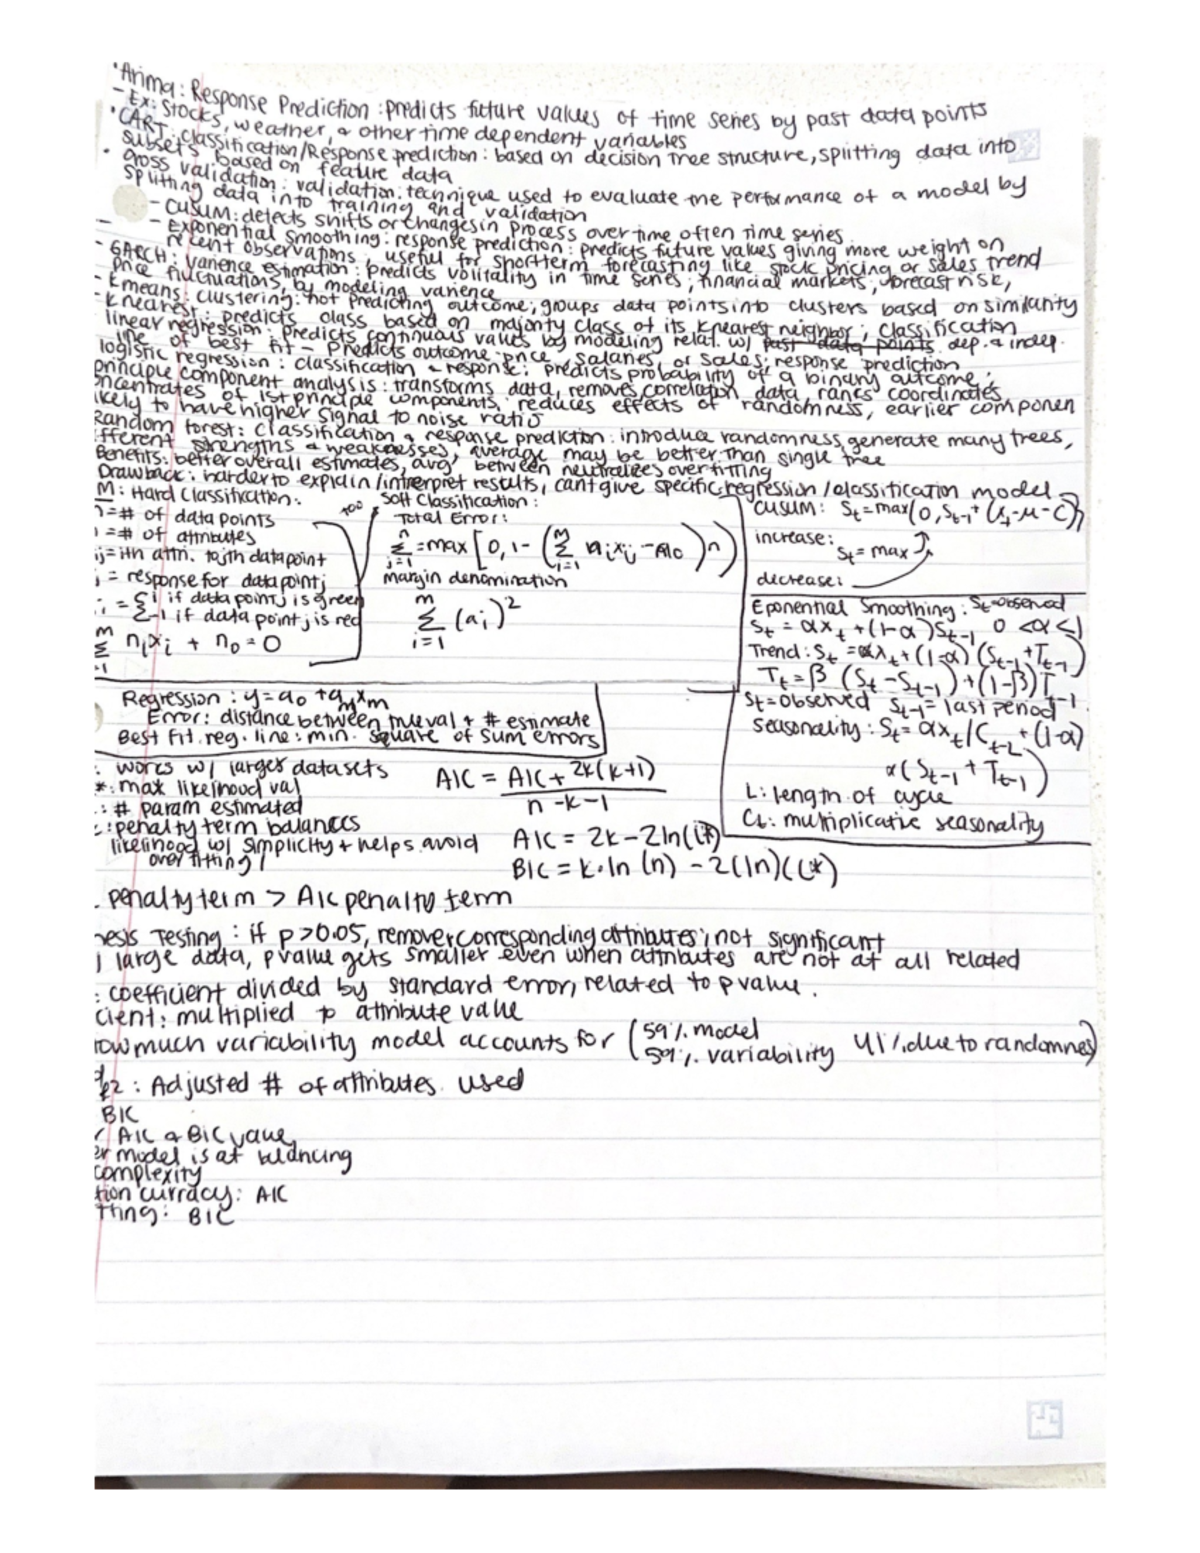 • Arima: Response Prediction: predicts future values of time series by past data points
- Ex: Stocks, weather, & other time dependent variables
• CART: classification/Response prediction: based on decision Tree structure, splitting data into
subsets based on feature data
• Cross validation: validation: technique used to evaluate the performance of a model by
splitting data into training and validation
- CUSUM: detects shifts or changes in process over time often Time series
- Exponential smoothing: response prediction: predicts future values giving more weight on
recent observations, useful for short term forecasting like stock pricing or sales trend
- GARCH: varience estimation: predicts volitality in time series; financial markets, forecast risk,
price fluctuations, by modeling varience
- kmeans: clustering: not predicting outcome, groups data points into clusters based on similarity
- k nearest: predicts class based on majority class of its k nearest neighbor; classification
linear regression: predicts continuous values by modeling relat. w/ past data points dep. & indep.
line of best fit - Predicts outcome: price, salaries, or sales; response prediction
logistic regression: classification & response: predicts probability of a binary outcome;
principle component analysis: transforms data, removes correlation data, ranks coordinates,
oncentrates of 1st principle components, reduces effects of randomness, earlier componen
ikely to have higher signal to noise ratio
Random forest: classification & response prediction: introduce randomness, generate many trees,
fferent strengths & weaknesses, average may be better than single tree
Benefits: better overall estimates, avg between neutralizes overfitting
Drawback: harder to explain/interpret results, cant give specific regression/classification model
M: Hard Classification:
=# of data points
=# of attributes
ij= ith attr. to jth datapoint
= response for data point j
i = { 1 if data point j is green
-1 if data point j is red
m Σ n i x i + n o = 0
Soft Classification:
Total Error:
n Σ j=1 = max [0, 1- (m Σ i=1 a i x ij - a o) n)
margin denomination
m Σ i=1 (a i)²
CUSUM: St = max(0, St-1 + (xt - μ - C))
increase:
St = max
decrease:
Eponential Smoothing: St=observed
St = αxt + (1-α)St-1 0 < α < 1
Trend: St = αxt + (1-α)(St-1 + Tt-1)
Tt = β (St - St-1) + (1-β)Tt-1
St = observed St-1 = last period
seasonality: St = αxt/Ct-L + (1-α)
α(St-1 + Tt-1)
L: length of cycle
Ct: multiplicative seasonality
Regression: y = a0 + amxm
Error: distance between true val + # estimate
Best fit reg. line: min. square of sum errors
: works w/ larger datasets
*: max likelihood val
: # param estimated
: penalty term balances
likelihood w/ simplicity + helps avoid
overfitting
AIC = AIC + 2k(k+1) / n-k-1
AIC = 2k - 2ln(L*)
BIC = k·ln(n) - 2(ln)(L*)
penalty term > AIC penalty term
hesis Testing: if p > 0.05, remove corresponding attributes; not significant
large data, p value gets smaller even when attributes are not at all related
: coefficient divided by standard error, related to p value.
cient: multiplied to attribute value
how much variability model accounts for (59% model
59% variability 41% due to randomnes)
R2: Adjusted # of attributes used
BIC
AIC & BIC value,
er model is at balancing
complexity
tion curracy: AIC
tting: BIC